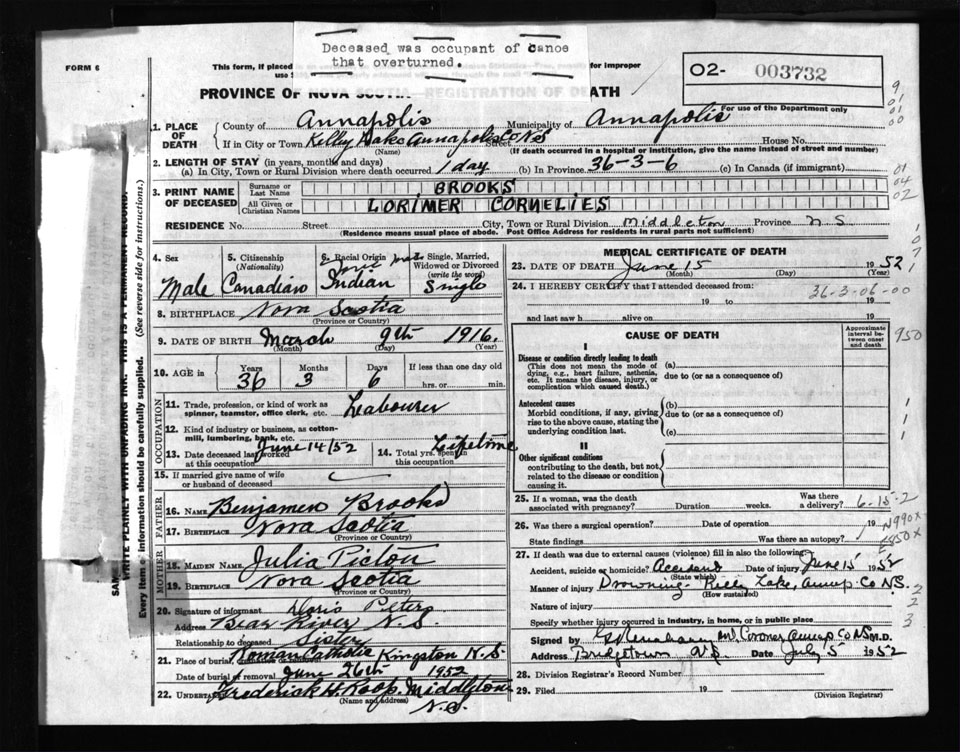 Deceased was occupant of canoe
that overturned.
FORM 6
This form, if placed
for improper
use
O2- 003732
For use of the Department only
PROVINCE OF NOVA SCOTIA—REGISTRATION OF DEATH
1. PLACE OF DEATH
County of Annapolis Municipality of Annapolis
If in City or Town Kelly Lake Annapolis Co NS Street House No.
(Name) (If death occurred in a hospital or institution, give the name instead of street and number)
2. LENGTH OF STAY (in years, months and days)
(a) In City, Town or Rural Division where death occurred 1 day (b) In Province 36-3-6 (c) In Canada (if immigrant)
3. PRINT NAME OF DECEASED
Surname or Last Name BROOKS
All Given or Christian Names LORIMER CORNELIES
RESIDENCE No. Street City, Town or Rural Division Middleton Province N S
(Residence means usual place of abode. Post Office Address for residents in rural parts not sufficient)
4. Sex Male
5. Citizenship (Nationality) Canadian
Racial Origin Indian
Single, Married, Widowed or Divorced (write the word) Single
8. BIRTHPLACE Nova Scotia
(Province or Country)
9. DATE OF BIRTH March 9th 1916.
(Month) (Day) (Year)
10. AGE in Years 36 Months 3 Days 6 If less than one day old
hrs. or min.
OCCUPATION
11. Trade, profession, or kind of work as spinner, teamster, office clerk, etc. Labourer
12. Kind of industry or business, as cotton-mill, lumbering, bank, etc.
13. Date deceased last worked at this occupation June 14/52
14. Total yrs. spent in this occupation Lifetime
15. If married give name of wife or husband of deceased
FATHER
16. NAME Benjamen Brooks
17. BIRTHPLACE Nova Scotia
(Province or Country)
MOTHER
18. MAIDEN NAME Julia Picton
19. BIRTHPLACE Nova Scotia
(Province or Country)
20. Signature of informant Doris Peters
Address Bear River N.S.
Relationship to deceased Sister
21. Place of burial Roman Catholic Kingston N.S.
Date of burial or removal June 26th 1952
22. UNDERTAKER Frederick H. Roop. Middleton N.S.
(Name and address)
MEDICAL CERTIFICATE OF DEATH
23. DATE OF DEATH June 15 1952
(Month) (Day) (Year)
24. I HEREBY CERTIFY that I attended deceased from:
36-3-06-00
19 to 19
and last saw h alive on 19
CAUSE OF DEATH
Approximate interval between onset and death
I
Disease or condition directly leading to death
(This does not mean the mode of dying, e.g., heart failure, asthenia, etc. It means the disease, injury, or complication which caused death.)
(a)
due to (or as a consequence of)
Antecedent causes
Morbid conditions, if any, giving rise to the above cause, stating the underlying condition last.
(b)
due to (or as a consequence of)
(c)
II
Other significant conditions
contributing to the death, but not related to the disease or condition causing it.
25. If a woman, was the death associated with pregnancy? Duration weeks. Was there a delivery? 6-15-2
26. Was there a surgical operation? Date of operation 19
State findings Was there an autopsy?
N990X
E850X
27. If death was due to external causes (violence) fill in also the following:
Accident, suicide or homicide? Accident Date of injury June 15 1952
(State which)
Manner of injury Drowning- Kelly Lake, Annap. Co N.S.
(How sustained)
Nature of injury
Specify whether injury occurred in Industry, in home, or in public place
Signed by Coroner Annap Co NS M.D.
Address Bridgetown N.S. Date July 5 1952
28. Division Registrar's Record Number
29. Filed 19 (Division Registrar)
WRITE PLAINLY WITH UNFADING INK. THIS IS A PERMANENT RECORD.
Every item of information should be carefully supplied. (See reverse side for instructions.)
950